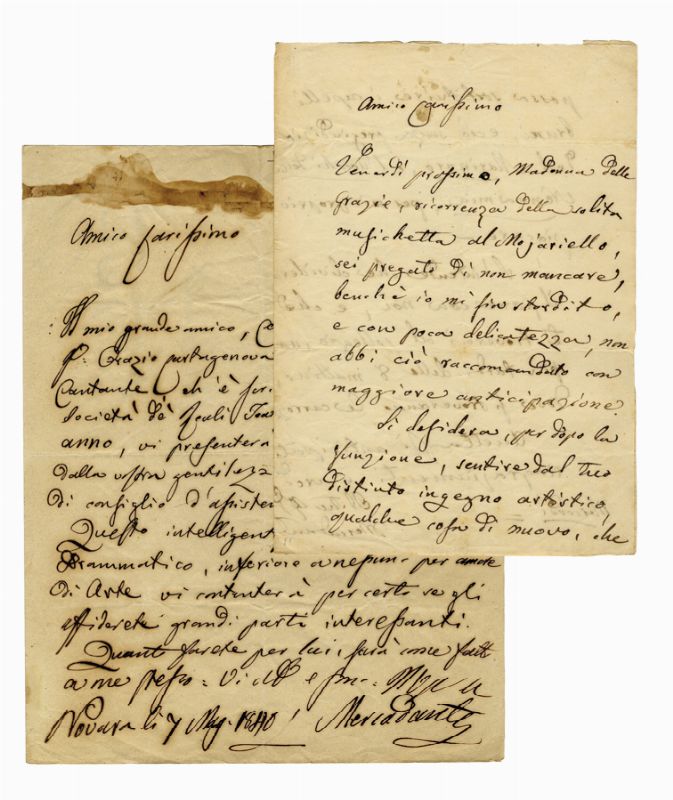 Amico carissimo
Il mio grande amico,
P. Orazio partugenova
Cantante ch'è
Società de' Reali
anno, vi presenterà
dalla vostra
di consiglio d'assisten
Questo intelligent
Drammatico, inferiore a nessuno per amore
di Arte vi contenterà per certo se gli
affiderete grandi parti interessanti.
Quant farete per lui, sarà come fatt
a me stesso =
Novara li 7 Mag. 1840 Mercadante
Amico carissimo
Venerdì prossimo, Madonna delle
Grazie, ricorrenza della solita
musichetta al Mojariello,
sei pregato di non mancare,
benchè io mi sia stordito,
e con poca delicatezza, non
abbi ciò raccomandato con
maggiore anticipazione.
Si desidera, per dopo la
funzione, sentire dal tuo
distinto ingegno artistico
qualche cosa di nuovo, che